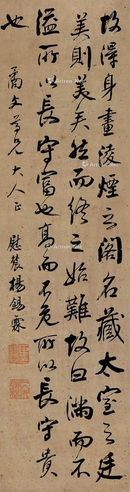 故得身畫凌煙之閣名藏太室之廷
美則美矣然而終之始難故曰滿而不
溢所以長守富也高而不危所以長守貴
也
文尊兄大人正
慰農楊錫霖